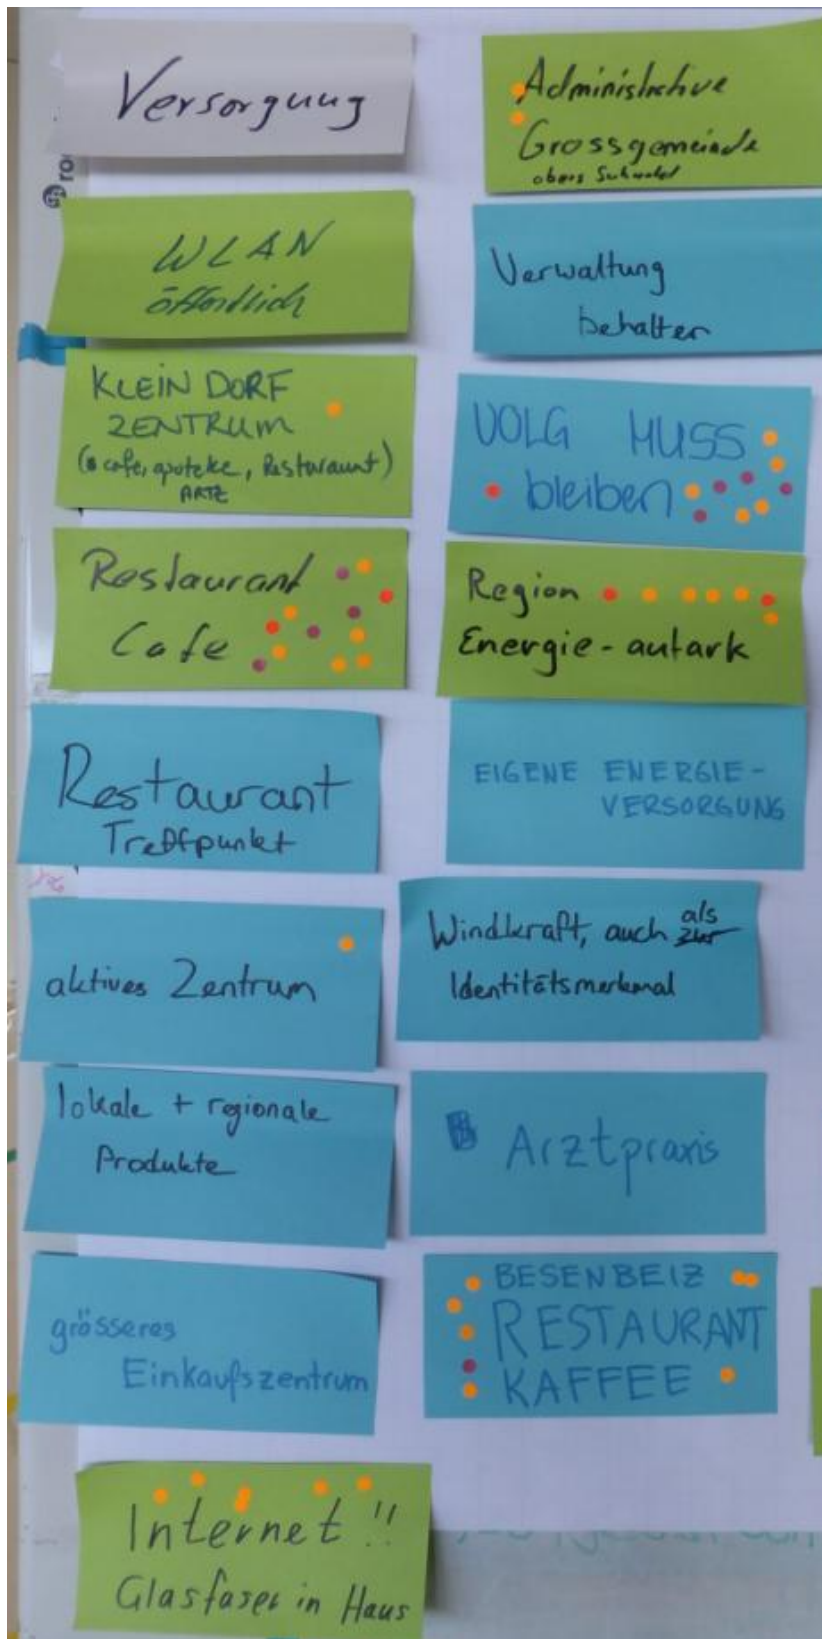 Versorgung
WLAN
öffentlich
KLEIN DORF
ZENTRUM
(cafe, apoteke, Resturaunt)
ARTZ
Restaurant
Cafe
Restaurant
Treffpunkt
aktives Zentrum
lokale + regionale
Produkte
grösseres
Einkaufszentrum
Internet !!
Glasfaser in Haus
Administrative
Grossgemeinde
obers
Verwaltung
behalten
VOLG MUSS
bleiben
Region
Energie-autark
EIGENE ENERGIE-
VERSORGUNG
Windkraft, auch als
Identitätsmerkmal
Arztpraxis
BESENBEIZ
RESTAURANT
KAFFEE